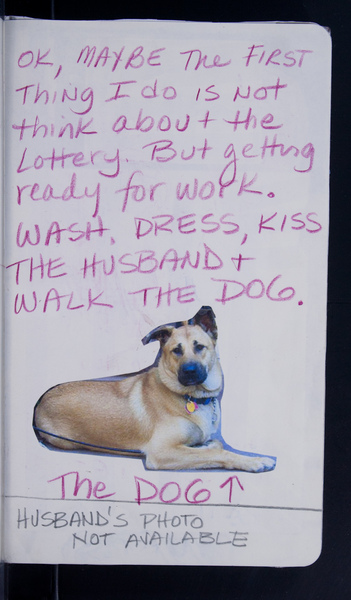 OK, MAYBE The FIRST
Thing I do IS NOT
think about the
Lottery. But getting
ready for work.
WASH, DRESS, KISS
THE HUSBAND +
WALK THE DOG.
The DOG ↑
HUSBAND'S PHOTO
NOT AVAILABLE